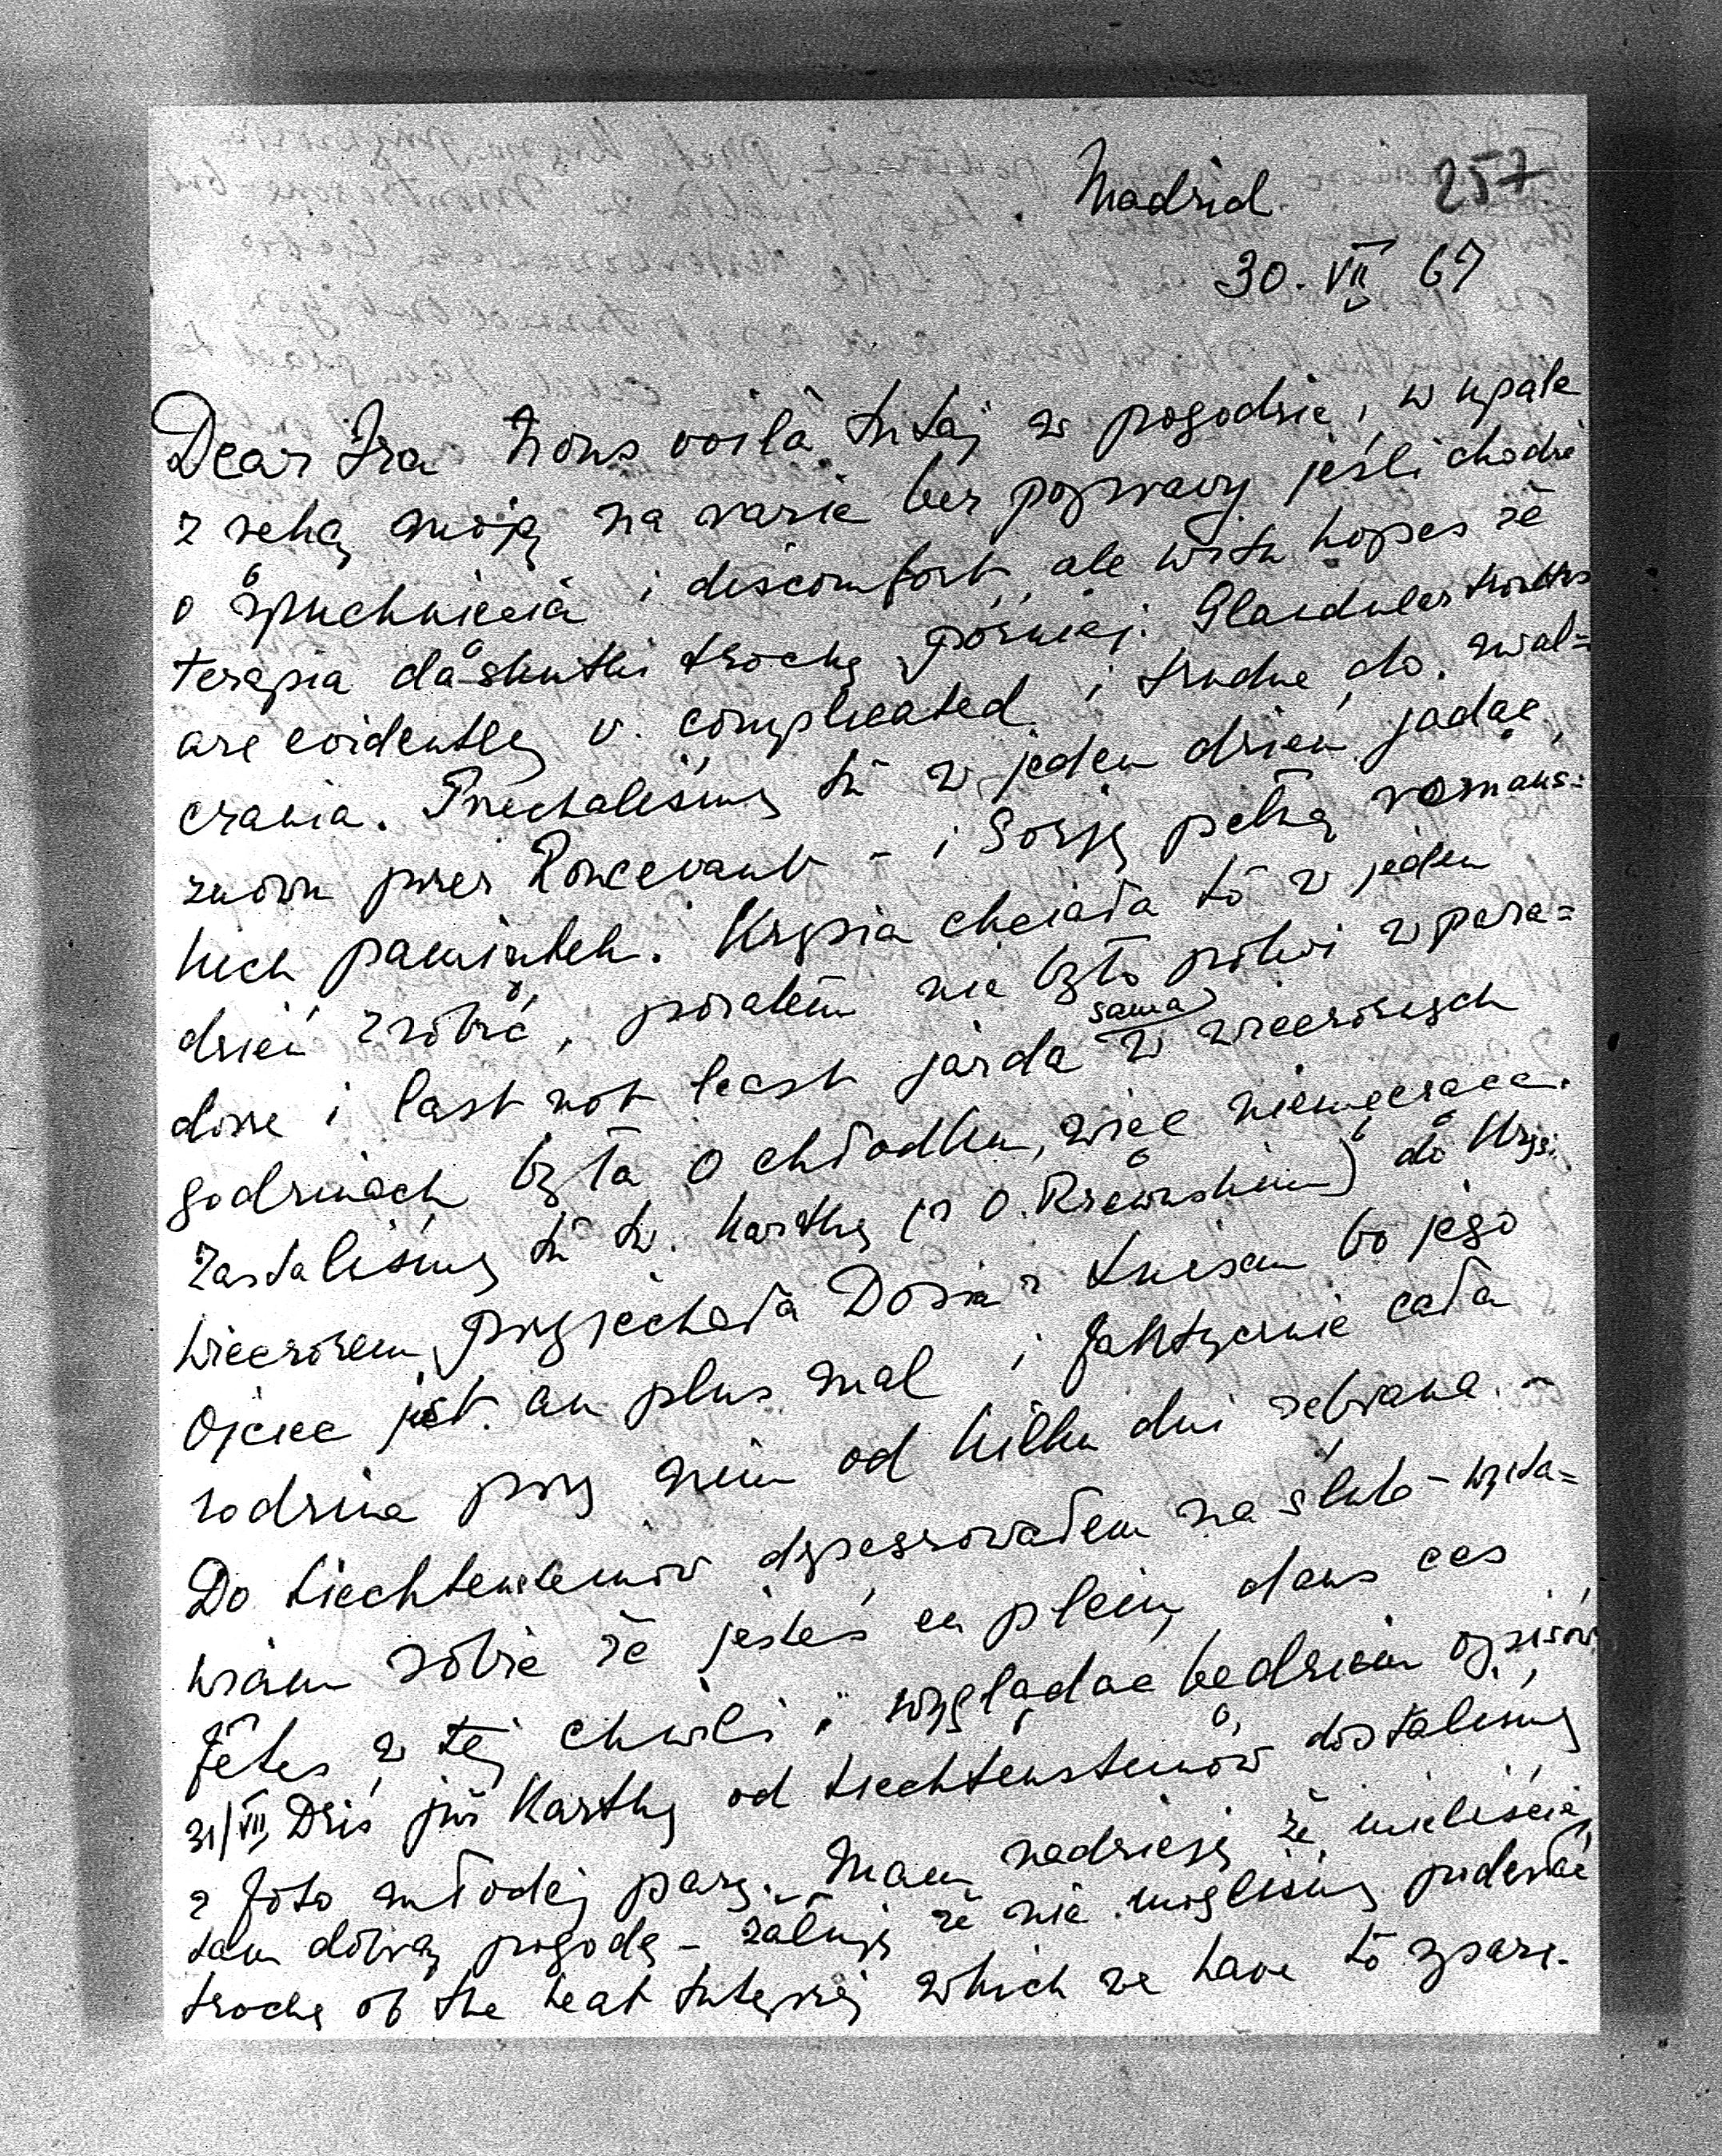 Madrid. 257
30. VII 67
Dear Ira nous voilà tutaj w pogodzie, w upale
z ręką moją na razie bez poprawy jeśli chodzi
o spuchnięcia i discomfort, ale with hopes że
terapia da skutki trochę później. Glandular troubles
are evidently v. complicated i trudne do zwal=
czania. Przechaliśmy tu w jeden dzień jadąc
znowu przez Roncevaux - i Sorję pełną romańs=
kich pamiątek. Krysia chciała to w jeden
dzień zrobić, pozatem nie było pokoi w para=
dorze i last not least jazda sama w wieczornych
godzinach była o chłodku, więc niemęcząca.
Zastaliśmy tu tw. kartkę (z O. Rzewuskim) do Krysi.
Wieczorem przyjechała Dosia z Luisem bo jego
ojciec jest au plus mal i faktycznie cała
rodzina przy nim od kilku dni zebrana. -
Do Liechtensteinów depeszowałem na ślub - wyda=
wiam sobie że jesteś en plein dans ces
fêtes w tej chwili i wyglądać będziem opisów
31/VII, Dziś już kartkę od Liechtensteinów dostaliśmy
z foto młodej pary. Mam nadzieję że mieliście
tam dobrą pogodę - żałuję że nie mogliśmy podesłać
trochę of the heat tutejszej which we have to spare.